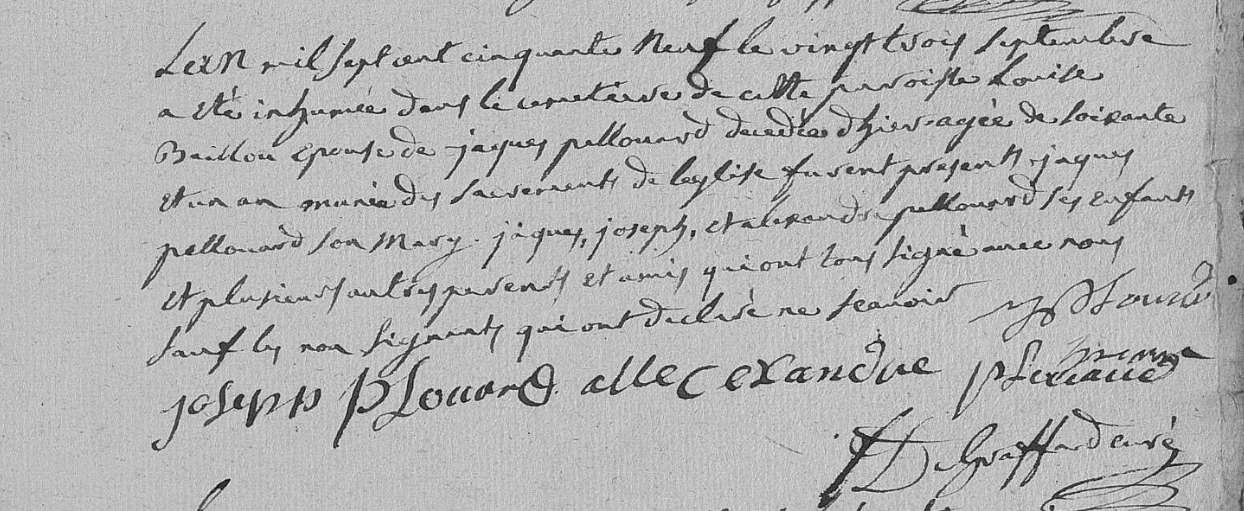 Lan mil sept cent cinquante neuf le vingt trois septembre
a eté inhumée dans le cemetiere de cette paroisse Louise
Baillou epouse de jaques pellouard decedée dhier agée de soixante
et un an munie des sacrements de leglise furent presents jaques
pellouard son mary. jâques, joseph, et alexandre pellouard ses enfants
et plusieurs autres parents et amis qui ont tous signé avec nous
sauf les non signants qui ont declaré ne scavoir
joseph Plouard allecexandre
D Graffard curé